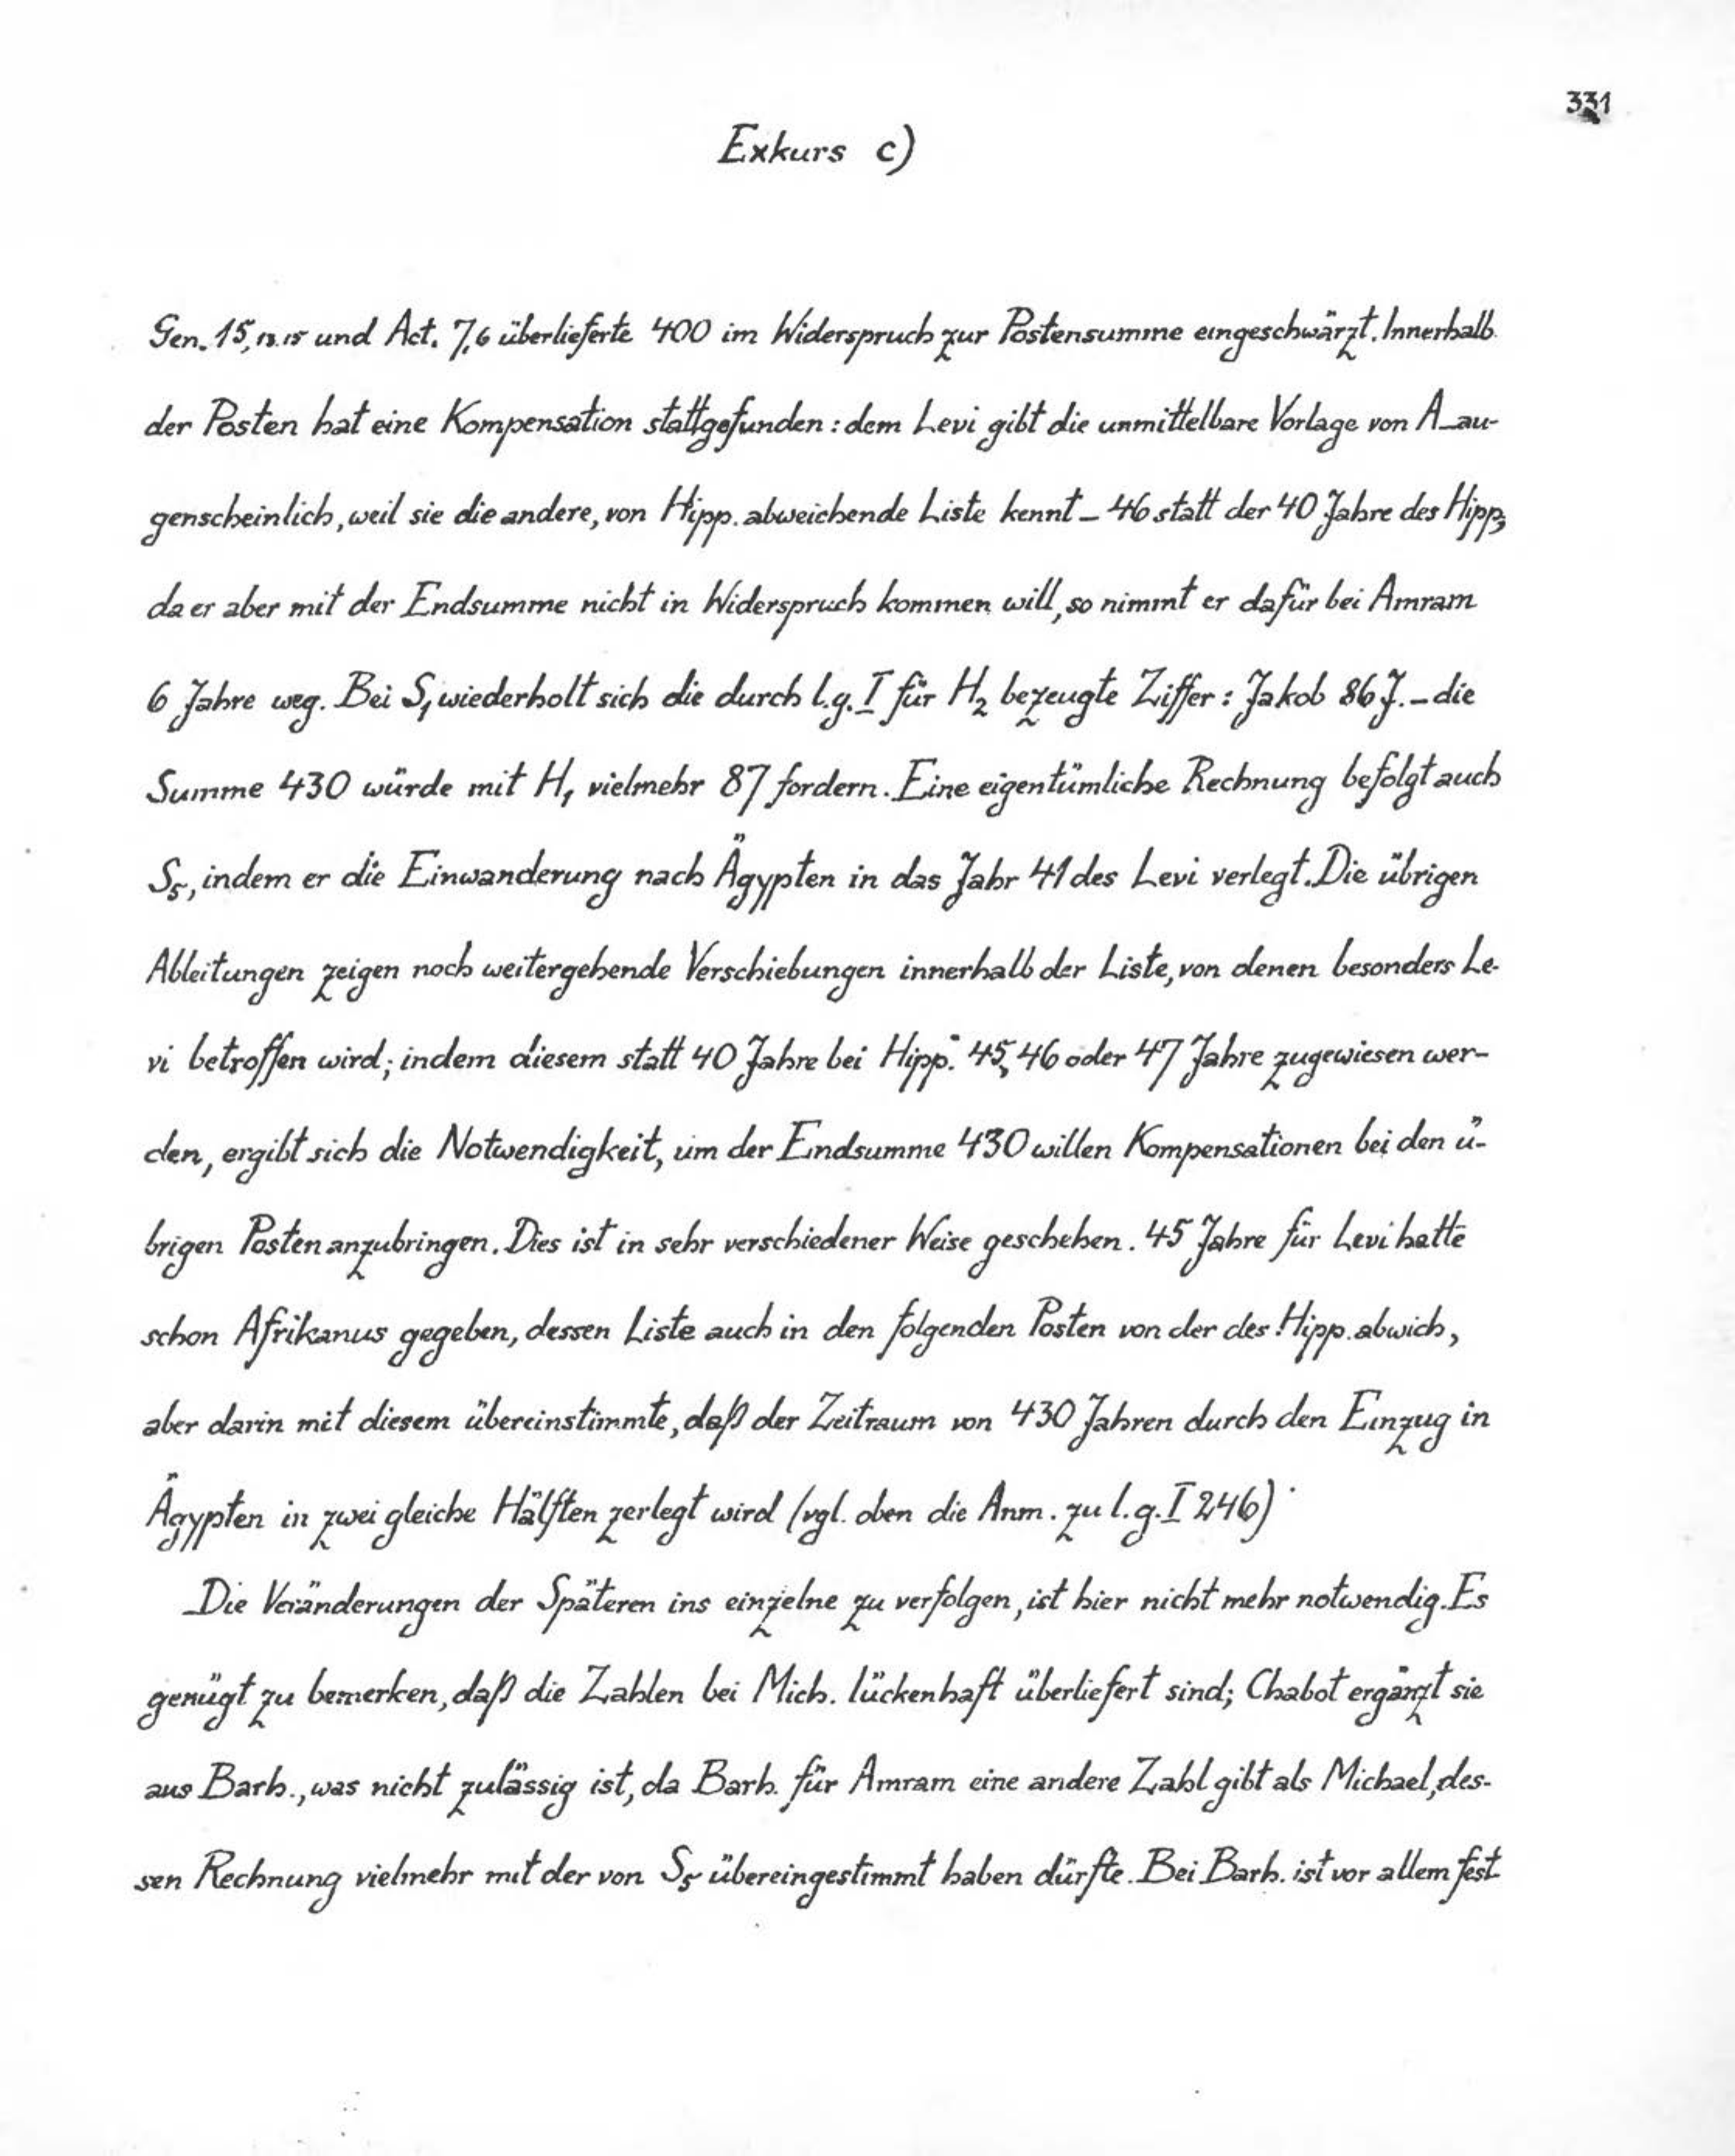 331
Exkurs c)
Gen. 15,13.15 und Act. 7,6 überlieferte 400 im Widerspruch zur Postensumme eingeschwärzt. Innerhalb
der Posten hat eine Kompensation stattgefunden: dem Levi gibt die unmittelbare Vorlage von A – au-
genscheinlich, weil sie die andere, von Hipp. abweichende Liste kennt – 46 statt der 40 Jahre des Hipp.;
da er aber mit der Endsumme nicht in Widerspruch kommen will, so nimmt er dafür bei Amram
6 Jahre weg. Bei S₁ wiederholt sich die durch l.g. I für H₂ bezeugte Ziffer: Jakob 86 J. – die
Summe 430 würde mit H₁ vielmehr 87 fordern. Eine eigentümliche Rechnung befolgt auch
S₅, indem er die Einwanderung nach Ägypten in das Jahr 41 des Levi verlegt. Die übrigen
Ableitungen zeigen noch weitergehende Verschiebungen innerhalb der Liste, von denen besonders Le-
vi betroffen wird; indem diesem statt 40 Jahre bei Hipp. 45, 46 oder 47 Jahre zugewiesen wer-
den, ergibt sich die Notwendigkeit, um der Endsumme 430 willen Kompensationen bei den ü-
brigen Posten anzubringen. Dies ist in sehr verschiedener Weise geschehen. 45 Jahre für Levi hatte
schon Afrikanus gegeben, dessen Liste auch in den folgenden Posten von der des Hipp. abwich,
aber darin mit diesem übereinstimmte, daß der Zeitraum von 430 Jahren durch den Einzug in
Ägypten in zwei gleiche Hälften zerlegt wird (vgl. oben die Anm. zu l.g. I 246).
Die Veränderungen der Späteren ins einzelne zu verfolgen, ist hier nicht mehr notwendig. Es
genügt zu bemerken, daß die Zahlen bei Mich. lückenhaft überliefert sind; Chabot ergänzt sie
aus Barh., was nicht zulässig ist, da Barh. für Amram eine andere Zahl gibt als Michael, des-
sen Rechnung vielmehr mit der von S₅ übereingestimmt haben dürfte. Bei Barh. ist vor allem fest-